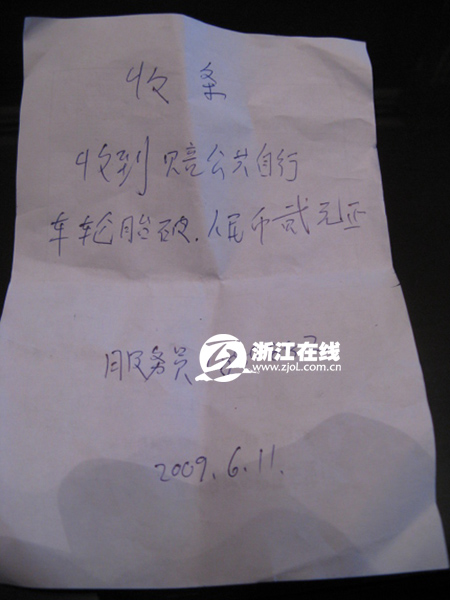 收条
收到赔公共自行
车轮胎破.人民币贰元正
服务员
浙江在线
www.zjol.com.cn
2009.6.11.